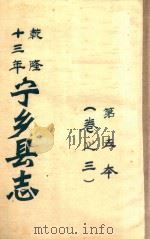 第本
（卷之三）
乾隆
十三年
宁乡县志